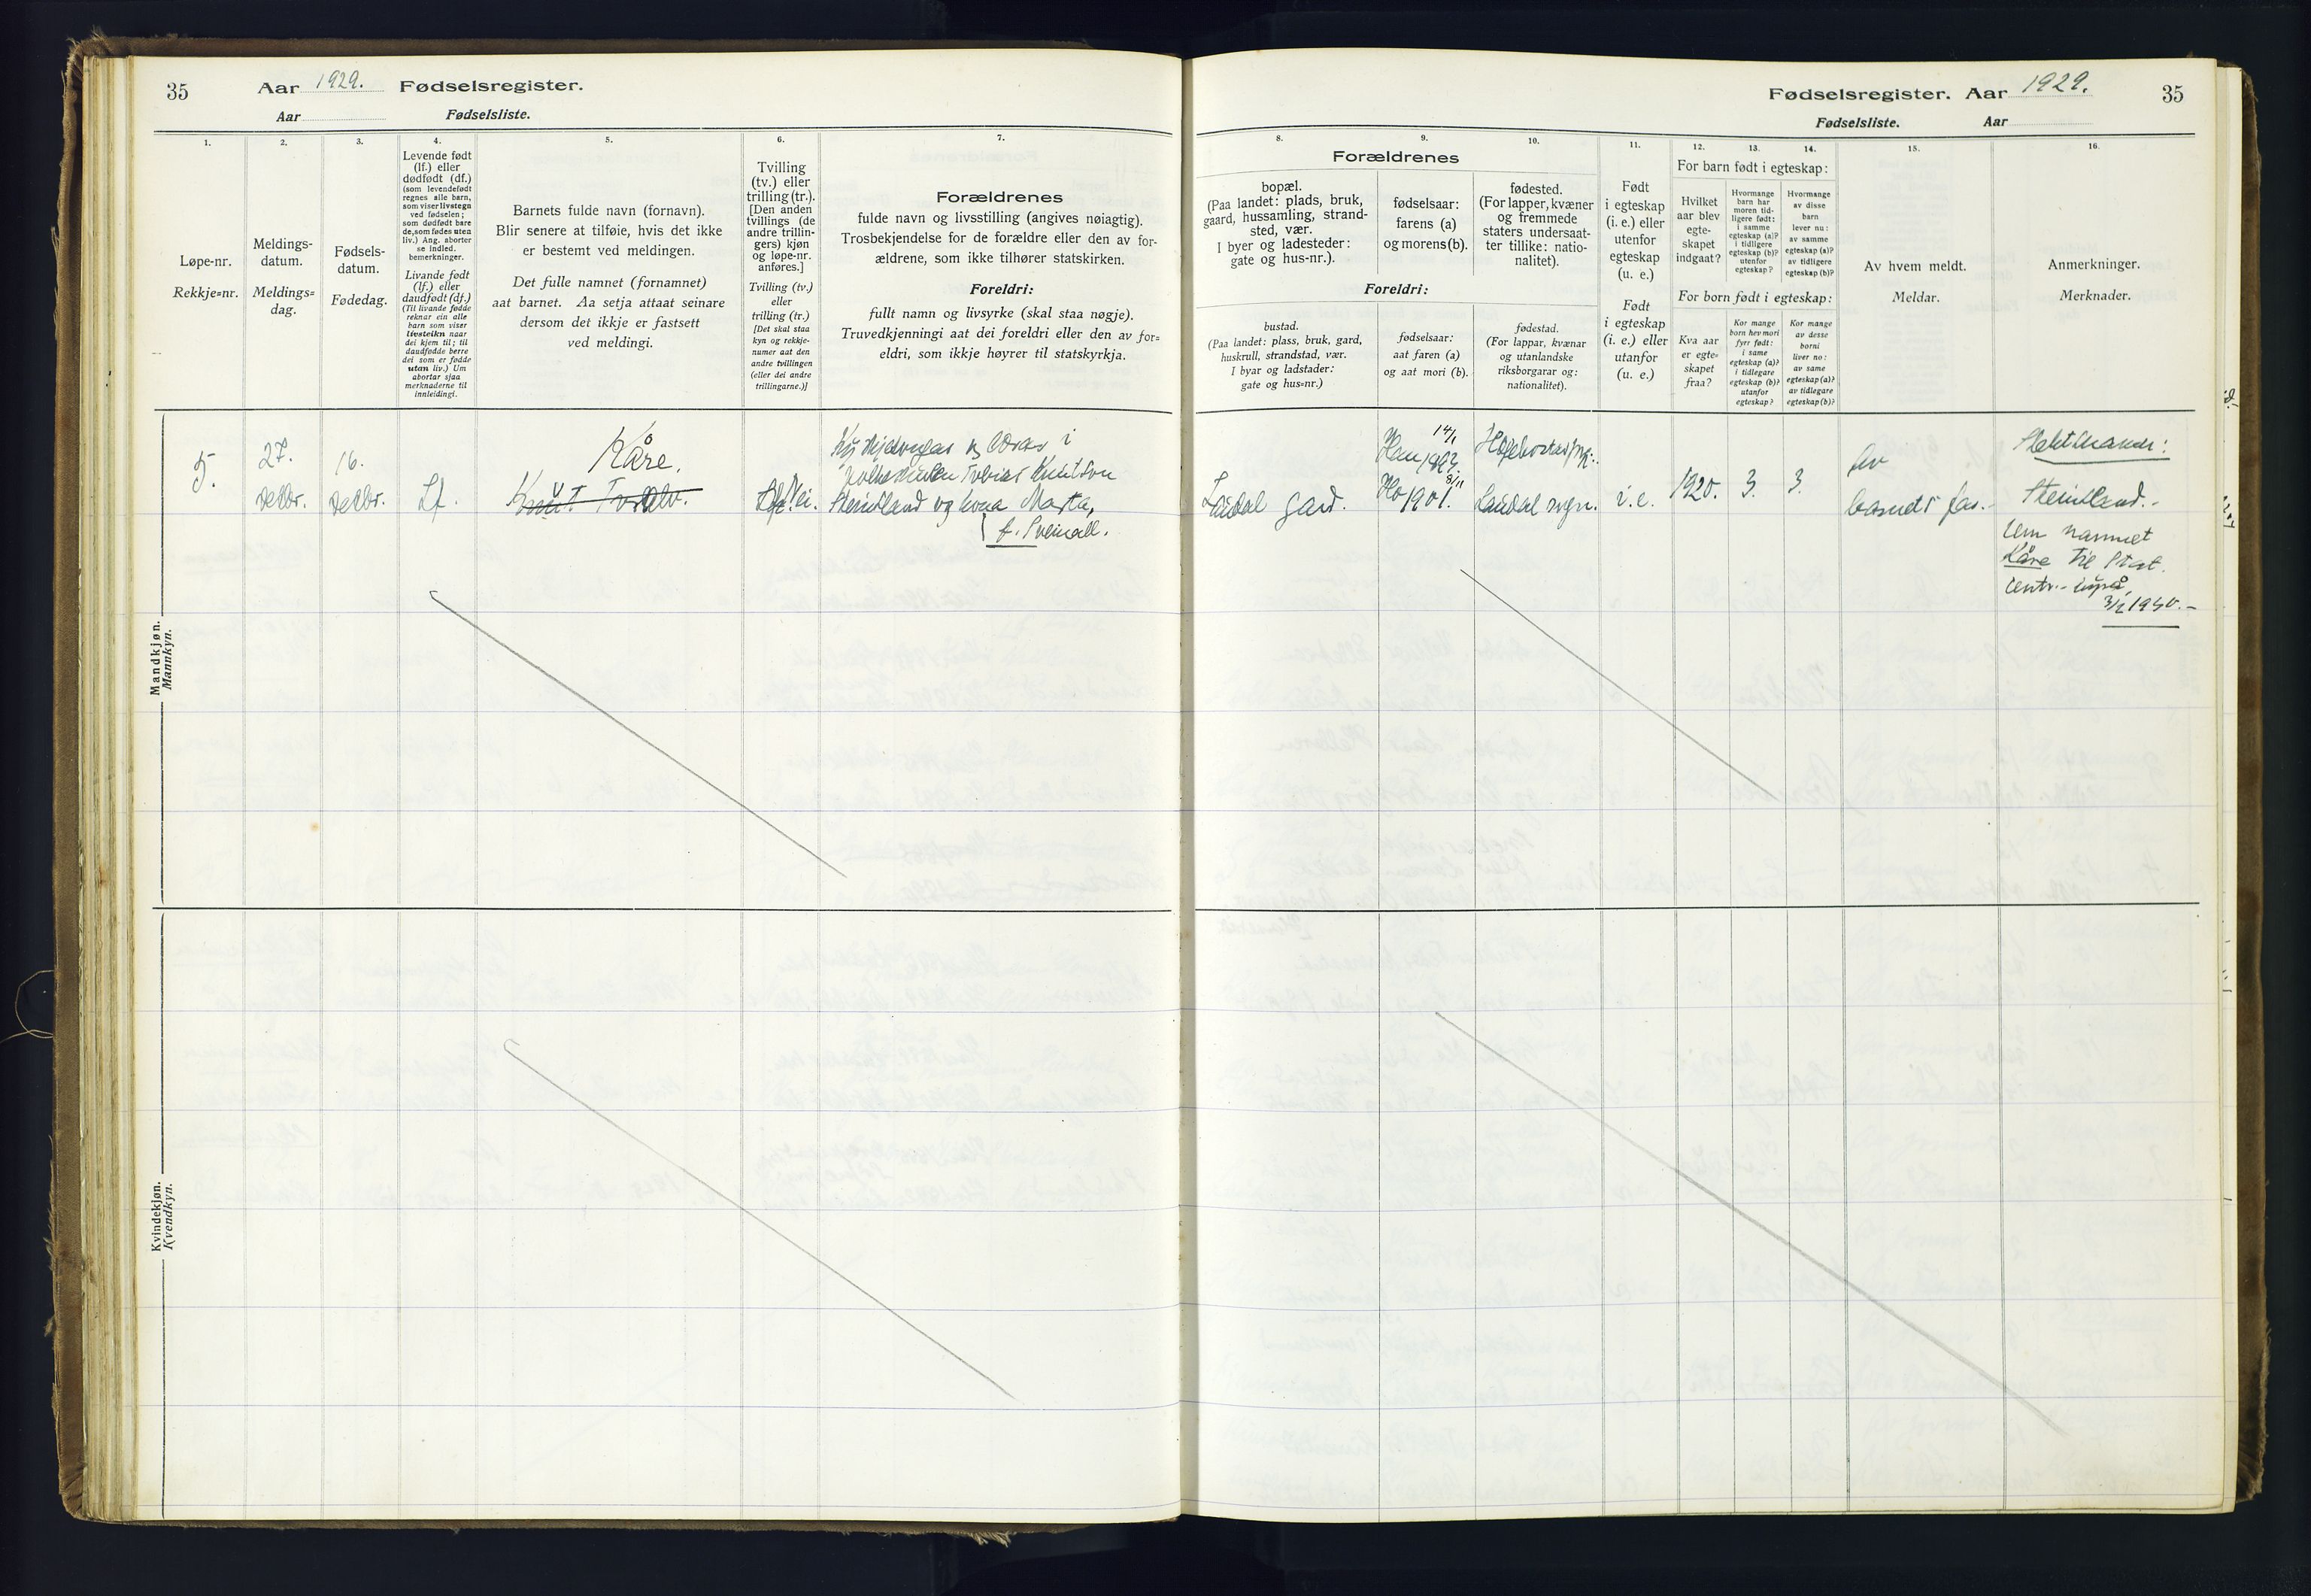 35
Aar 1929. Fødselsregister.
Aar Fødselsliste.
1.
Løpe-nr.
Rekkje=nr.
2.
Meldings-
datum.
Meldings=
dag.
3.
Fødsels-
datum.
Fødedag.
4.
Levende født
(lf.) eller
dødfødt (df.)
(som levendefødt
regnes alle barn,
som viser livstegn
ved fødselen;
som dødfødt bare
de, som fødes uten
liv.) Ang. aborter
se indled.
bemerkninger.
Livande født
(lf.) eller
daudfødt (df.)
(Til livande fødde
reknar ein alle
barn som viser
livsteikn naar
dei kjem til; til
daudfødde berre
dei som er fødde
utan liv.) Um
abortar sjaa
merknaderne til
innleidingi.
5.
Barnets fulde navn (fornavn).
Blir senere at tilføie, hvis det ikke
er bestemt ved meldingen.
Det fulle namnet (fornamnet)
aat barnet. Aa setja attaat seinare
dersom det ikkje er fastsett
ved meldingi.
6.
Tvilling
(tv.) eller
trilling (tr.).
[Den anden
tvillings (de
andre trillin-
gers) kjøn
og løpe-nr.
anføres.]
Tvilling (tv.)
eller
trilling (tr.)
[Det skal staa
kyn og rekkje-
numer aat den
andre tvillingen
(eller dei andre
trillingarne.)]
7.
Forældrenes
fulde navn og livsstilling (angives nøiagtig).
Trosbekjendelse for de forældre eller den av for-
ældrene, som ikke tilhører statskirken.
Foreldri:
fullt namn og livsyrke (skal staa nøgje).
Truvedkjenningi aat dei foreldri eller den av for=
eldri, som ikkje høyrer til statskyrkja.
Mandkjøn.
Mannkyn.
5.
27.
desbr.
16.
desbr.
Lf.
Kåre.
Knut
ei.
i
Tobias Knutson
Steinsland og kona Marta,
f. Sveinall.
Kvindekjøn.
Kvendkyn.
Fødselsregister. Aar 1929.
35
Fødselsliste. Aar
8.
Forældrenes
bopæl.
(Paa landet: plads, bruk,
gaard, hussamling, strand-
sted, vær.
I byer og ladesteder:
gate og hus-nr.).
9.
fødselsaar:
farens (a)
og morens (b).
10.
fødested.
(For lapper, kvæner
og fremmede
staters undersaat-
ter tillike: natio-
nalitet).
Foreldri:
bustad.
(Paa landet: plass, bruk, gard,
huskrull, strandstad, vær.
I byar og ladstader:
gate og hus=nr.)
fødselsaar:
aat faren (a)
og aat mori (b).
fødestad.
(For lappar, kvænar
og utanlandske
riksborgarar og:
nationalitet).
11.
Født
i egteskap
(i. e.) eller
utenfor
egteskap
(u. e.)
Født
i egteskap
(i. e.) eller
utanfor
(u. e.)
12.
13.
14.
For barn født i egteskap:
Hvilket
aar blev
egte-
skapet
indgaat?
Hvormange
barn har
moren tid-
ligere født:
i samme
egteskap (a)?
i tidligere
egteskap (b)?
utenfor
egteskap?
Hvormange
av disse
barn
lever nu:
av samme
egteskap (a)?
av tidligere
egteskap (b)?
For born født i egteskap:
Kva aar
er egte=
skapet
fraa?
Kor mange
born hev mori
fyrr født:
i same
egteskap (a)?
i tidlegare
egteskap (b)?
utanfor
egteskap?
Kor mange
av desse
borni
liver no:
av same
egteskap (a)?
av tidlegare
egteskap (b)?
15.
Av hvem meldt.
Meldar.
16.
Anmerkninger.
Merknader.
Laudal gard.
14/1
Han
Ho 1901.
8/11
Laudal sogn.
i.e.
1920.
3.
3.
Av
barnets far.-
Slektsnamn:
Steinsland.-
Um namnet
Kåre til Stat.
Centr.-
1930.-